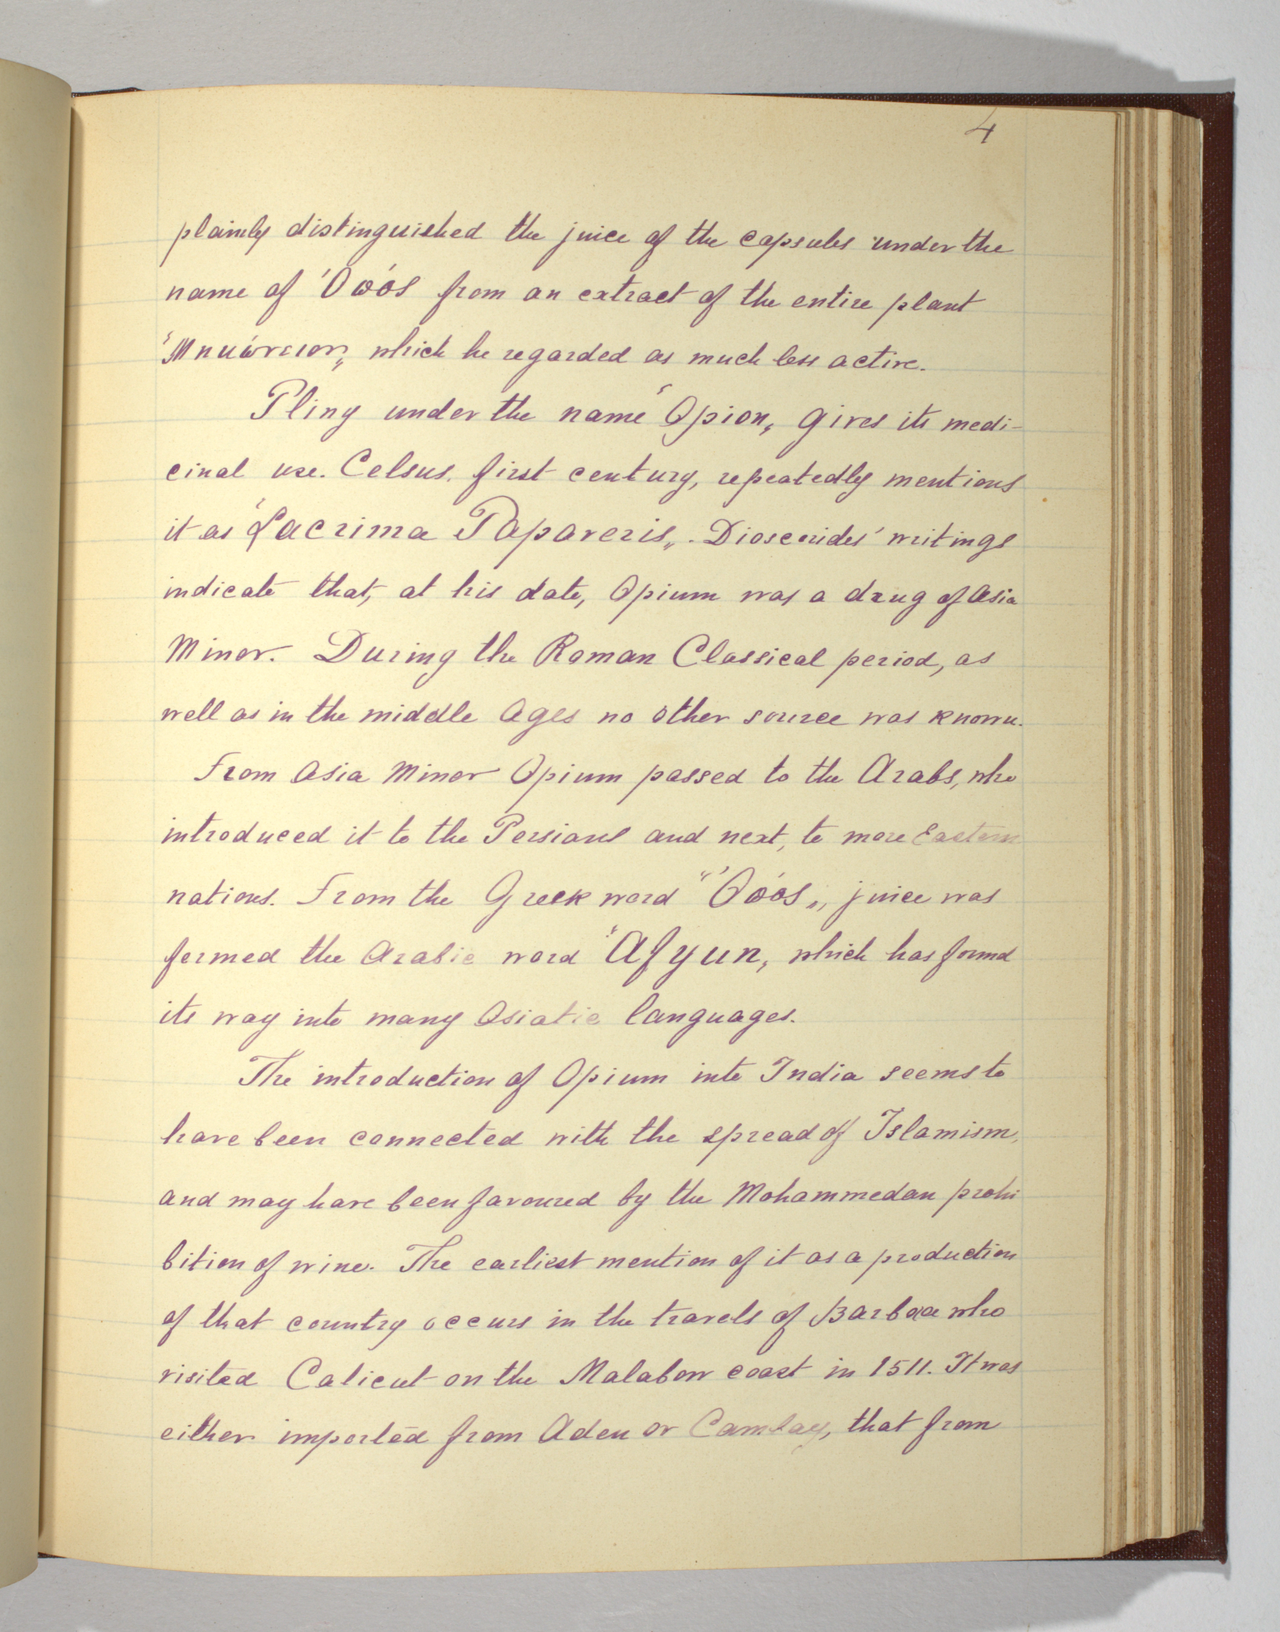 4
plainly distinguished the juice of the capsules under the
name of 'Οωόs from an extract of the entire plant
"Μηuώνειον„ which he regarded as much less active.
Pliny under the name "Opion„ gives its medi-
cinal use. Celsus. first century, repeatedly mentions
it as "Lacrima Papaveris„. Dioscorides' writings
indicate that, at his date, Opium was a drug of Asia
Minor. During the Roman Classical period, as
well as in the middle Ages no other source was known.
From Asia Minor Opium passed to the Arabs, who
introduced it to the Persians and next, to more Eastern
nations. From the Greek word "'Οωόs„, juice was
formed the Arabic word "Afyun, which has found
its way into many Asiatic languages.
The introduction of Opium into India seems to
have been connected with the spread of Islamism,
and may have been favoured by the Mohammedan prohi
bition of wine. The earliest mention of it as a production
of that country occurs in the travels of Barboa who
visited Calicut on the Malabar coast in 1511. It was
either imported from Aden or Cambay, that from